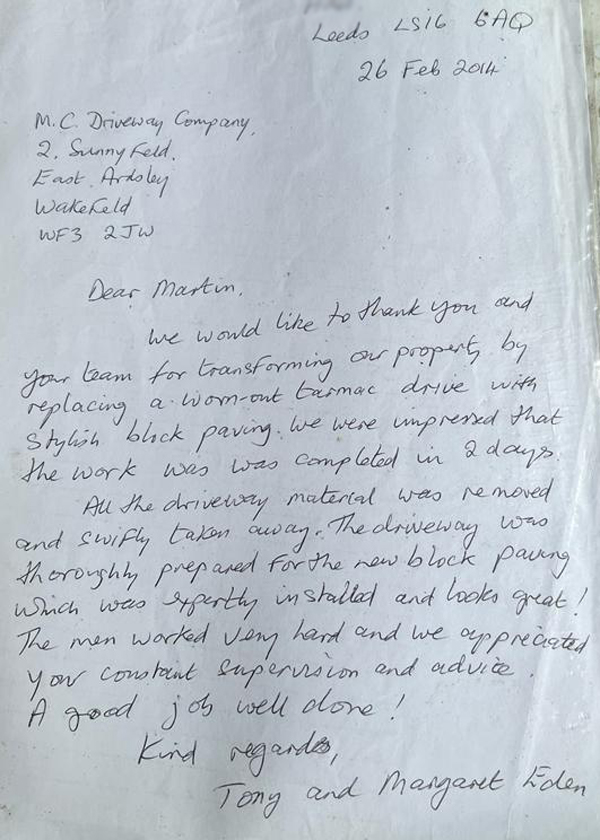 Leeds LS16 6AQ
26 Feb 2014
M.C. Driveway Company,
2, Sunnyfield.
East Ardsley
Wakefield
WF3 2JW
Dear Martin,
We would like to thank you and
your team for transforming our property by
replacing a worn-out tarmac drive with
stylish block paving. We were impressed that
the work was was completed in 2 days.
All the driveway material was removed
and swifly taken away. The driveway was
thoroughly prepared for the new block paving
which was expertly installed and looks great!
The men worked very hard and we appreciated
your constant supervision and advice.
A good job well done!
Kind regards,
Tony and Margaret Eden